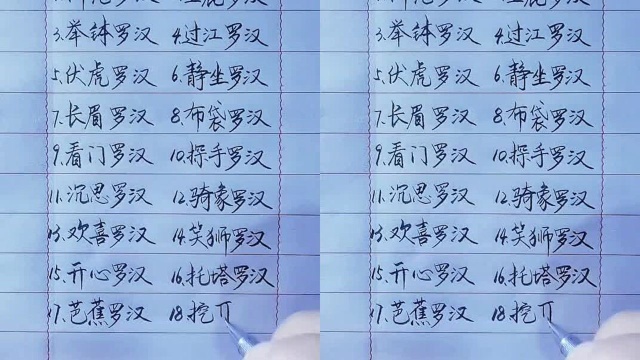 3.举钵罗汉 4.过江罗汉
5.伏虎罗汉 6.静坐罗汉
7.长眉罗汉 8.布袋罗汉
9.看门罗汉 10.探手罗汉
11.沉思罗汉 12.骑象罗汉
13.欢喜罗汉 14.笑狮罗汉
15.开心罗汉 16.托塔罗汉
17.芭蕉罗汉 18.挖
3.举钵罗汉 4.过江罗汉
5.伏虎罗汉 6.静坐罗汉
7.长眉罗汉 8.布袋罗汉
9.看门罗汉 10.探手罗汉
11.沉思罗汉 12.骑象罗汉
13.欢喜罗汉 14.笑狮罗汉
15.开心罗汉 16.托塔罗汉
17.芭蕉罗汉 18.挖